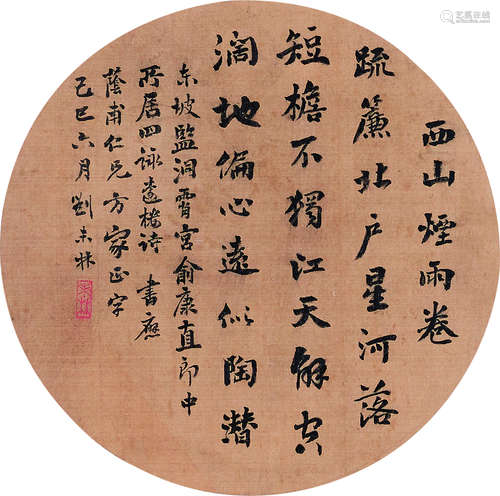 西山煙雨卷
疏簾北户星河落
短檐不獨江天解空
濶地偏心遠似陶潛
东坡監洞霄宮俞康直郎中
所居四詠遠樓詩 書應
蔭甫仁兄方家正字
己巳六月劉未林
艺狐在线
yihuzx.com